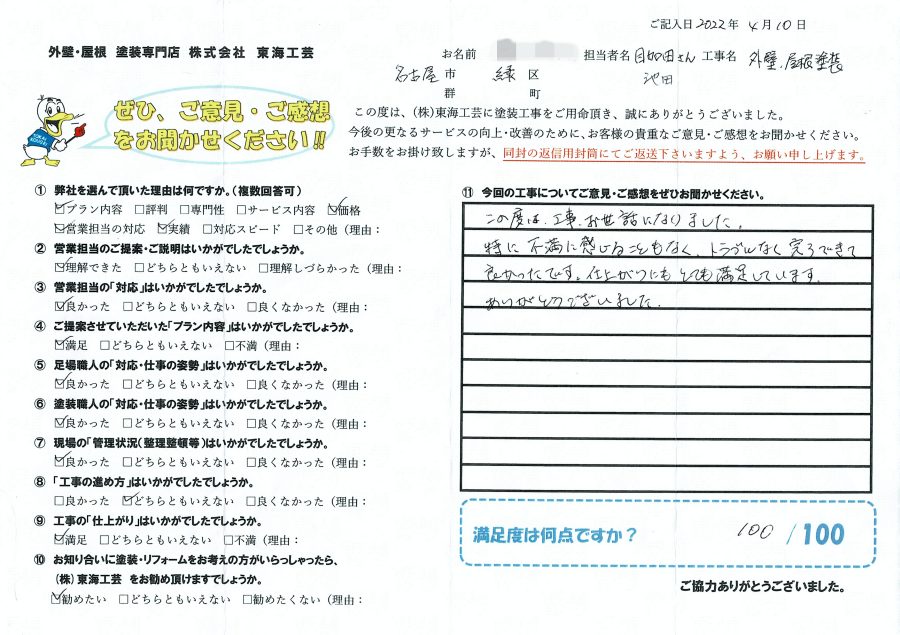 ご記入日 2022年 4月10日
外壁・屋根 塗装専門店 株式会社 東海工芸
お名前 担当者名 さん 工事名 外壁、屋根塗装
名古屋 市 緑 区 池田
群 町
ぜひ、ご意見・ご感想
をお聞かせください!!
この度は、(株)東海工芸に塗装工事をご用命頂き、誠にありがとうございました。
今後の更なるサービスの向上・改善のために、お客様の貴重なご意見・ご感想をお聞かせください。
お手数をお掛け致しますが、同封の返信用封筒にてご返送下さいますよう、お願い申し上げます。
① 弊社を選んで頂いた理由は何ですか。(複数回答可)
☑プラン内容 □評判 □専門性 □サービス内容 ☑価格
☑営業担当の対応 ☑実績 □対応スピード □その他(理由:
② 営業担当のご提案・ご説明はいかがでしたでしょうか。
☑理解できた □どちらともいえない □理解しづらかった(理由:
③ 営業担当の「対応」はいかがでしたでしょうか。
☑良かった □どちらともいえない □良くなかった(理由:
④ ご提案させていただいた「プラン内容」はいかがでしたでしょうか。
☑満足 □どちらともいえない □不満(理由:
⑤ 足場職人の「対応・仕事の姿勢」はいかがでしたでしょうか。
☑良かった □どちらともいえない □良くなかった(理由:
⑥ 塗装職人の「対応・仕事の姿勢」はいかがでしたでしょうか。
☑良かった □どちらともいえない □良くなかった(理由:
⑦ 現場の「管理状況(整理整頓等)はいかがでしたでしょうか。
☑良かった □どちらともいえない □良くなかった(理由:
⑧ 「工事の進め方」はいかがでしたでしょうか。
□良かった ☑どちらともいえない □良くなかった(理由:
⑨ 工事の「仕上がり」はいかがでしたでしょうか。
☑満足 □どちらともいえない □不満(理由:
⑩ お知り合いに塗装・リフォームをお考えの方がいらっしゃったら、
(株)東海工芸 をお勧め頂けますでしょうか。
☑勧めたい □どちらともいえない □勧めたくない(理由:
⑪ 今回の工事についてご意見・ご感想をぜひお聞かせください。
この度は、工事、お世話になりました。
特に不満に感じることもなく、トラブルなく完了できて
良かったです。仕上がりにもとても満足しています。
ありがとうございました。
満足度は何点ですか? 100 / 100
ご協力ありがとうございました。